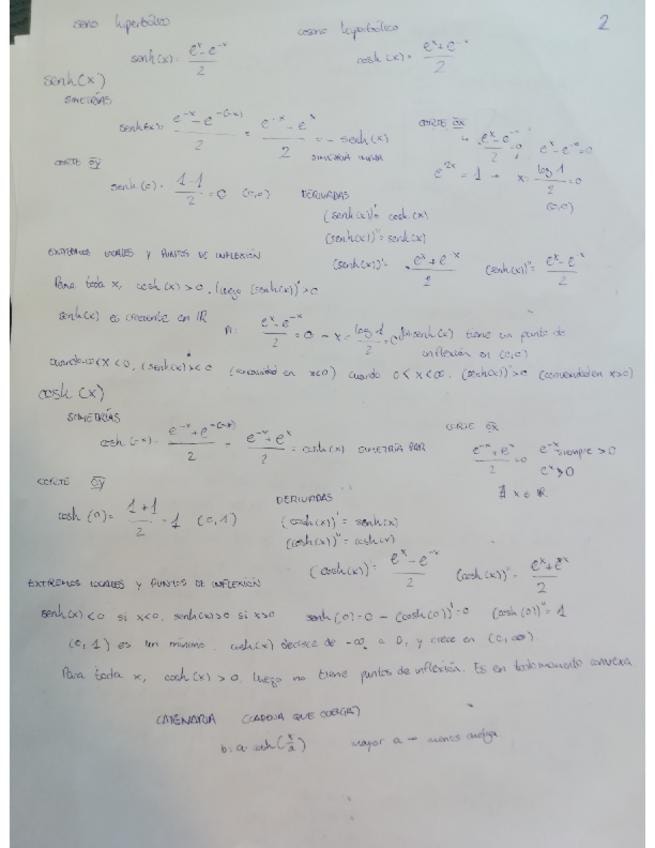 seno hiperbólico
coseno hiperbólico
2
senh(x) = (e^x - e^-x)/2
cosh(x) = (e^x + e^-x)/2
senh(x)
SIMETRÍAS
senh(-x) = (e^-x - e^-(-x))/2 = (e^-x - e^x)/2 = - senh(x)
SIMETRÍA IMPAR
CORTE OX
(e^x - e^-x)/2 = 0, e^x - e^-x = 0
e^2x = 1 → x = log 1/2 = 0
(0,0)
CORTE OY
senh(0) = (1-1)/2 = 0 (0,0)
DERIVADAS
(senh(x))' = cosh(x)
(senh(x))'' = senh(x)
(senh(x))' = (e^x + e^-x)/2 (senh(x))'' = (e^x - e^-x)/2
EXTREMOS LOCALES Y PUNTOS DE INFLEXIÓN
Para toda x, cosh(x) > 0, luego (senh(x))' > 0
senh(x) es creciente en IR
PI: (e^x - e^-x)/2 = 0 → x = log 1/2 = 0 senh(x) tiene un punto de
inflexión en (0,0)
cuando -∞ < x < 0, (senh(x))'' < 0 (concavidad en x<0) cuando 0 < x < ∞, (senh(x))'' > 0 (convexidad en x>0)
cosh(x)
SIMETRÍAS
cosh(-x) = (e^-x + e^-(-x))/2 = (e^-x + e^x)/2 = cosh(x) SIMETRÍA PAR
CORTE OX
(e^-x + e^x)/2 = 0 e^-x siempre > 0
e^x > 0
∄ x ∈ IR
CORTE OY
cosh(0) = (1+1)/2 = 1 (0,1)
DERIVADAS
(cosh(x))' = senh(x)
(cosh(x))'' = cosh(x)
(cosh(x))' = (e^x - e^-x)/2 (cosh(x))'' = (e^x + e^-x)/2
EXTREMOS LOCALES Y PUNTOS DE INFLEXIÓN
senh(x) < 0 si x<0, senh(x) > 0 si x>0 senh(0) = 0 → (cosh(0))' = 0 (cosh(0))'' = 1
(0,1) es un mínimo. cosh(x) decrece de -∞ a 0, y crece en (0,∞).
Para toda x, cosh(x) > 0, luego no tiene puntos de inflexión. Es en todo momento convexa
CATENARIA (CADENA QUE CUELGA)
b = a cosh(x/a) mayor a →